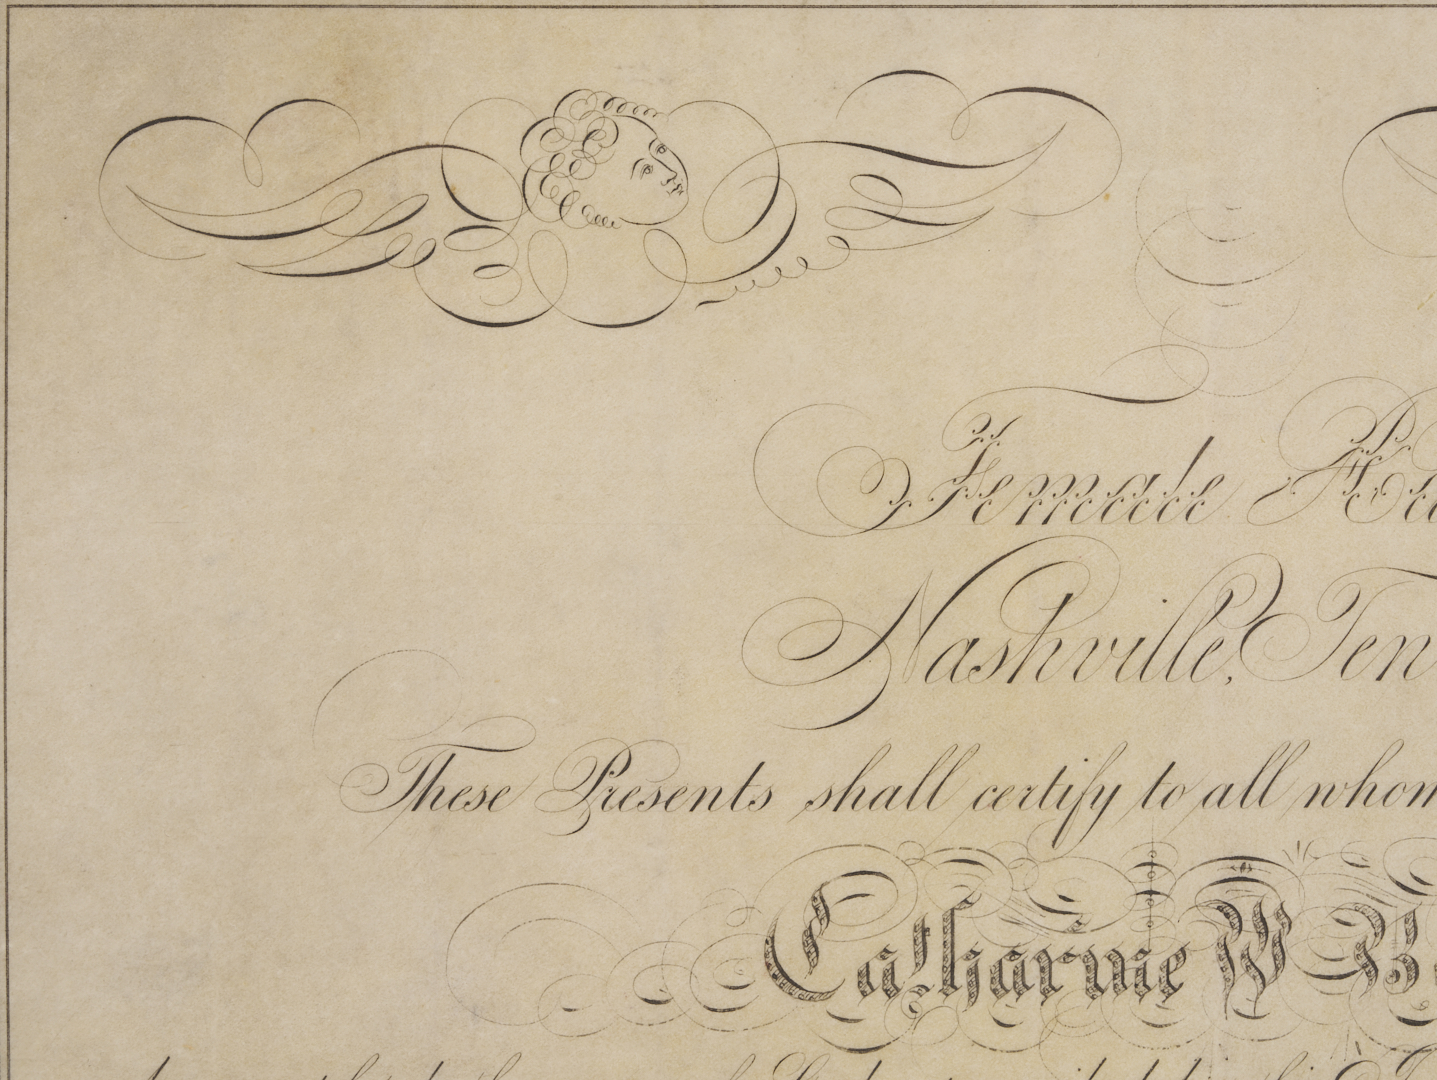 Female
Nashville, Ten
These Presents shall certify to all whom
Catharine W